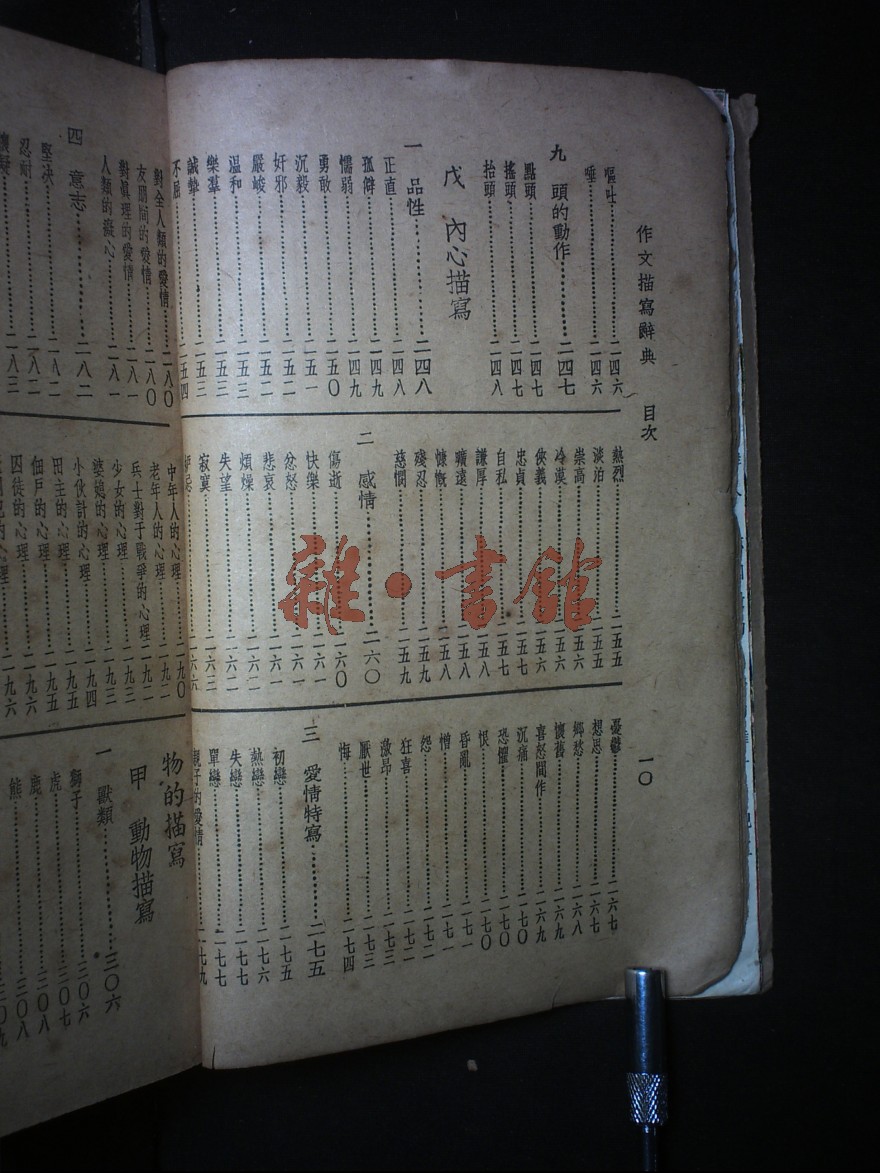 作文描寫辭典　目次
一〇
嘔吐…二四六
唾…二四六
九　頭的動作…二四七
點頭…二四七
搖頭…二四七
抬頭…二四八
戊　內心描寫
一　品性…二四八
正直…二四八
孤僻…二四九
懦弱…二四九
勇敢…二五〇
沉毅…二五一
奸邪…二五二
嚴峻…二五二
温和…二五三
樂羣…二五三
誠摯…二五三
不屈…二五四
熱烈…二五五
淡泊…二五五
崇高…二五六
冷漠…二五六
俠義…二五六
忠貞…二五七
自私…二五七
謙厚…二五八
曠遠…二五八
慷慨…二五八
殘忍…二五九
慈憫…二五九
二　感情…二六〇
傷逝…二六〇
快樂…二六一
忿怒…二六一
悲哀…二六一
煩燥…二六二
失望…二六二
寂寞…二六三
妒忌…二六六
憂鬱…二六七
想思…二六七
鄉愁…二六八
懷舊…二六九
喜怒間作…二六九
沉痛…二七〇
恐懼…二七〇
恨…二七〇
昏亂…二七一
憎…二七一
怨…二七二
狂喜…二七二
激昂…二七三
厭世…二七三
悔…二七四
三　愛情特寫…二七五
初戀…二七五
熱戀…二七六
失戀…二七七
單戀…二七七
親子的愛情…二七九
對全人類的愛情…二八〇
友朋間的愛情…二八〇
對眞理的愛情…二八一
人類的癡心…二八一
四　意志…二八二
堅决…二八二
忍耐…二八二
懷疑…二八三
中年人的心理…一九〇
老年人的心理…一九二
兵士對于戰爭的心理…一九二
少女的心理…一九三
婆媳的心理…一九四
小伙計的心理…一九五
田主的心理…一九五
佃戶的心理…一九六
囚徒的心理…一九六
物的描寫
甲　動物描寫
一　獸類…三〇六
獅子…三〇六
虎…三〇七
鹿…三〇八
熊…三〇八
雜·書館